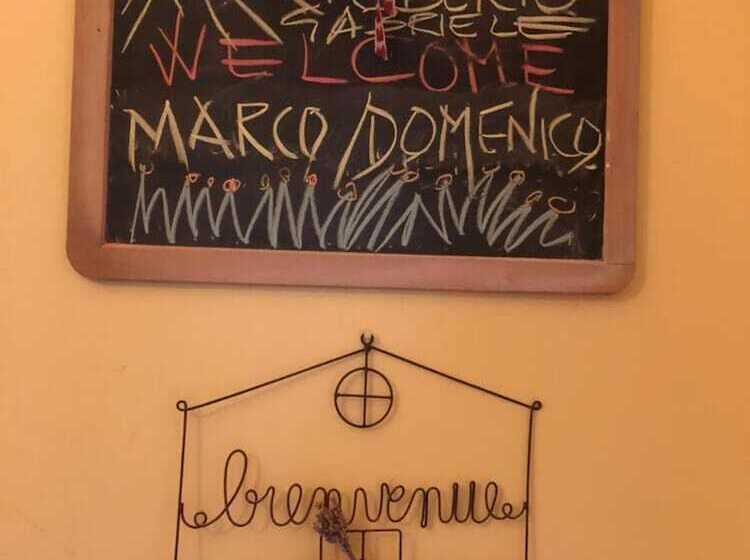 ROBERTO
GABRIELE
WELCOME
MARCO/DOMENICO
bienvenue